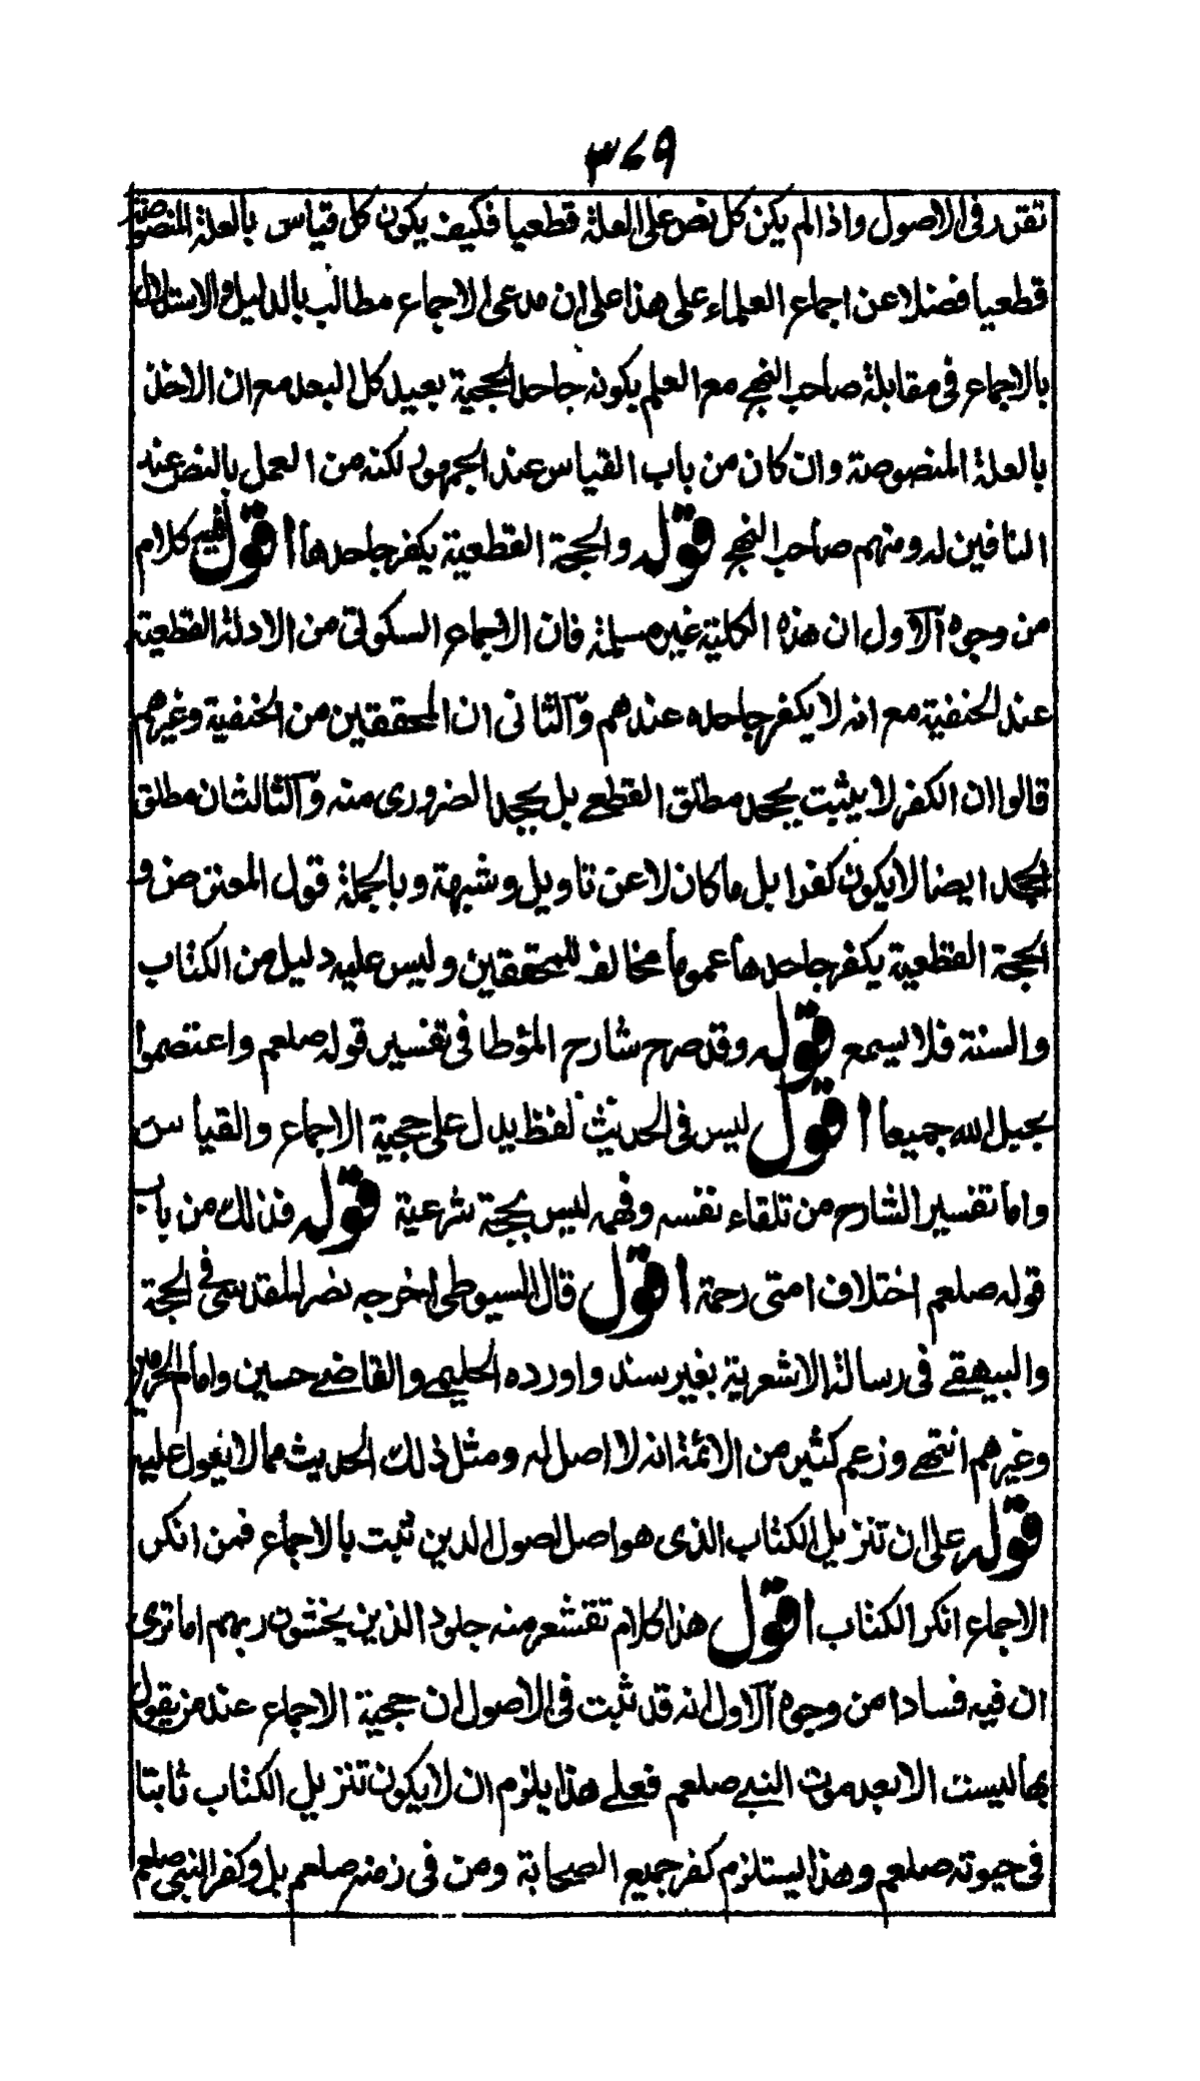 ٣٤٩
تقرر فى الاصول واذا لم يكن كل نص على العلة قطعيا فكيف يكون كل قياس بالعلة المنصوصة
قطعيا فضلا عن اجماع العلماء على هذا على ان مدعى الاجماع مطالب بالدليل والاستدلال
بالاجماع فى مقابلة صاحب النهج مع العلم بكونه جاحد الحجية بعيد كل البعد مع ان الاخذ
بالعلة المنصوصة وان كان من باب القياس عند الجمهور لكنه من العمل بالنص عند
النافين له ومنهم صاحب النهج قوله والحجة القطعية يكفر جاحدها اقول فيه كلام
من وجوه آلاول ان هذه الكلية غير مسلمة فان الاجماع السكوتى من الادلة القطعية
عند الحنفية مع انه لا يكفر جاحده عندهم وآلثانى ان المحققين من الحنفية وغيرهم
قالوا ان الكفر لا يثبت بجحد مطلق القطعے بل بجحد الضرورى منه وآلثالث ان مطلق
الجحد ايضا لا يكون كفرا بل ما كان لا عن تاويل وشبهة وبالجملة قول المعترض و
الحجة القطعية يكفر جاحدها عموما مخالف للمحققين وليس عليه دليل من الكتاب
والسنة فلا يسمع قوله وقد صرح شارح المؤطا فى تفسير قوله صلعم واعتصموا
بحبل الله جميعا اقول ليس فى الحديث لفظ يدل على حجية الاجماع والقياس
واما تفسير الشارح من تلقاء نفسه وفهمه ليس بحجة شرعية قوله فذلك من باب
قوله صلعم اختلاف امتى رحمة اقول قال السيوطى اخرجه نصر المقدسى فى الحجة
والبيهقے فى رسالة الاشعرية بغير سند واورده الحليمے والقاضے حسين وامام الحرمين
وغيرهم انتهے وزعم كثير من الائمة انه لا اصل له ومثل ذلك الحديث مما لا يعول عليه
قوله على ان تنزيل الكتاب الذى هو اصل اصول الدين ثبت بالاجماع فمن انكر
الاجماع انكر الكتاب اقول هذا كلام تقشعر منه جلود الذين يخشون ربهم اما ترى
ان فيه فسادا من وجوه آلاول انه قد ثبت فى الاصول ان حجية الاجماع عند من يقول
بها ليست الا بعد موت النبے صلعم فعلے هذا يلزم ان لا يكون تنزيل الكتاب ثابتا
فى حيوته صلعم وهذا يستلزم كفر جميع الصحابة ومن فى زمنه صلعم بل وكفر النبى صلعم